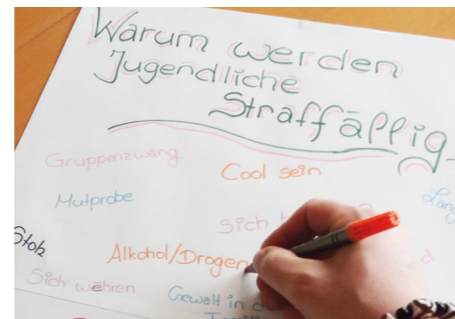 Warum werden
Jugendliche
Straffällig
Gruppenzwang
Cool sein
Mutprobe
Sich
Stolz
Alkohol/Drogen
Sich wehren
Gewalt in